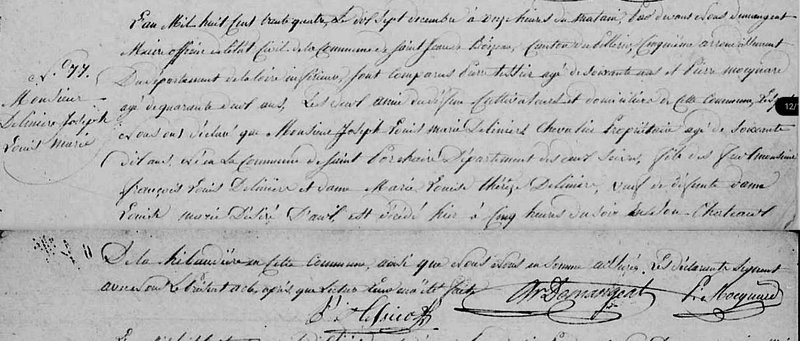 L'an Mil huit Cent trente quatre, Le dix Sept decembre à onze heures du matin, Pardevant Nous demangeat
Maire officier de l'état Civil de la Commune de Saint Jean de Boiseau, Canton du Pellerin, Cinquième arrondissement
Du département de la Loire inférieure, Sont comparus Pierre tessier agé de Soixante ans et Pierre mocquard
agé de quarante deux ans, Les deux amis du défunt Cultivateurs et domiciliés de Cette Commune, Lesquels
Nous ont déclaré que Monsieur Joseph Louis marie Deliniers Chevalier Propriétaire agé de Soixante
dix ans, né en La Commune de Saint Porchaire Département des deux Sèvres, fils des feu monsieur
françois Louis Deliniers et dame Marie Louise thérèze Deliniers, veuf de défunte dame
Louise marie Désiré est décédé hier à Cinq heures du Soir en Son Chateau
N.° 77.
Monsieur
Deliniere Joseph
Louis Marie
12/
De la hibaudière en Cette Commune, ainsi que Nous Nous en Somme assurés, Les déclarants Signent
avec Nous Le présent acte, après que lecture Leur en a été faite
Demangeat
P. Mocquard